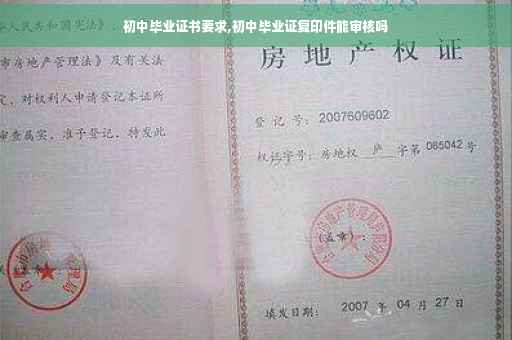 初中毕业证书要求,初中毕业证复印件能审核吗
人民共和国宪法》、
市房地产管理法》及有关法
定,对权利人申请登记本证所
审查属实,准予登记,特发此
房地产权证
登记号:2007609602
权证字号:房地权 庐 字第 085042 号
(盖章):
填发日期:2007 年 04 月 27 日